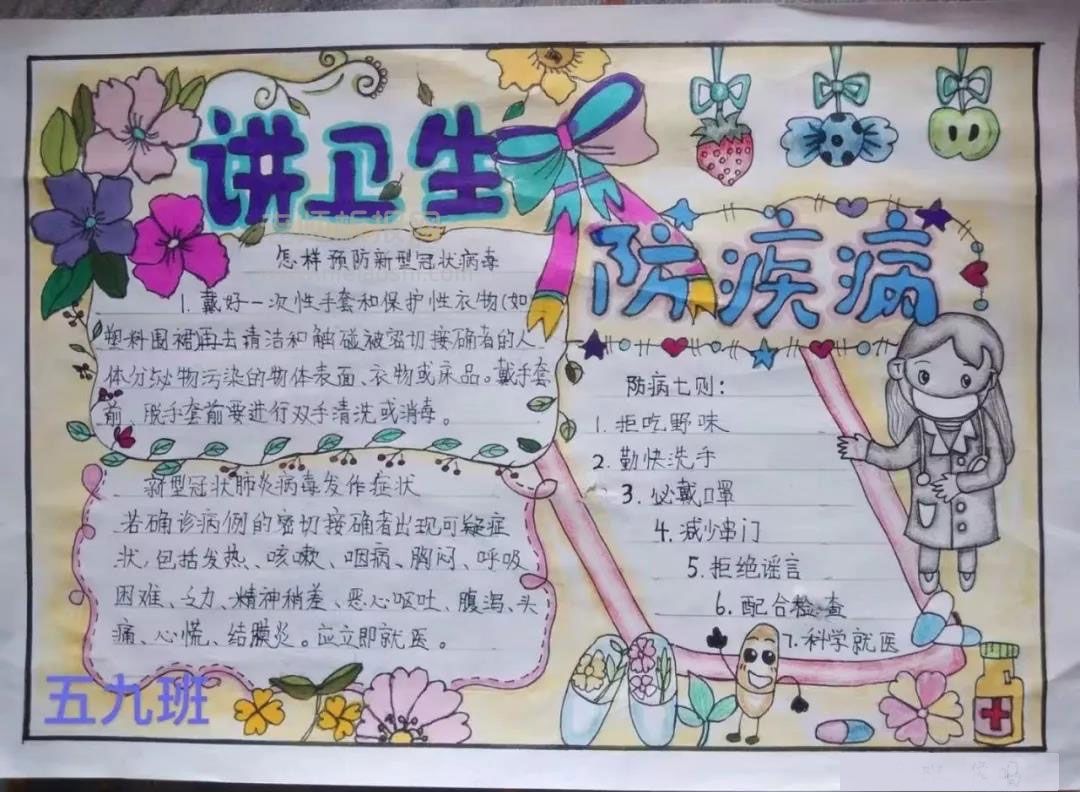 讲卫生
怎样预防新型冠状病毒
1. 戴好一次性手套和保护性衣物(如
塑料围裙)再去清洁和触碰被密切接确者的人
体分泌物污染的物体表面、衣物或床品。戴手套
前、脱手套前要进行双手清洗或消毒。
新型冠状肺炎病毒发作症状
若确诊病例的密切接确者出现可疑症
状,包括发热、咳嗽、咽病、胸闷、呼吸
困难、乏力、精神稍差、恶心呕吐、腹泻、头
痛、心慌、结膜炎。应立即就医。
五九班
防疾病
防病七则:
1. 拒吃野味
2. 勤快洗手
3. 必戴口罩
4. 减少串门
5. 拒绝谣言
6. 配合检查
7. 科学就医